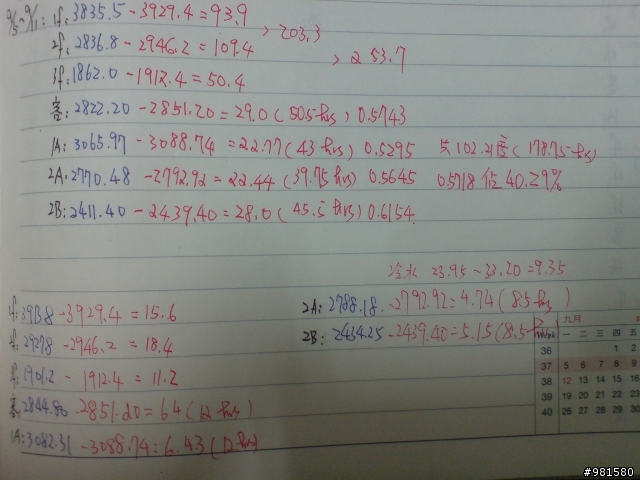 1f: 3835.5 - 3929.4 = 93.9 > 203.3
2f: 2836.8 - 2946.2 = 109.4 > 253.7
3f: 1862.0 - 1912.4 = 50.4
客: 2822.20 - 2851.20 = 29.0 (50.5 hrs) 0.5743
1A: 3065.97 - 3088.74 = 22.77 (43 hrs) 0.5295 共102.21度 (178.75 hrs)
2A: 2770.48 - 2792.92 = 22.44 (39.75 hrs) 0.5645 0.5718 佔 40.29%
2B: 2411.40 - 2439.40 = 28.0 (45.5 hrs) 0.6154
冷水 23.95 - 33.20 = 9.35
1f: 3913.8 - 3929.4 = 15.6
2A: 2788.18 - 2792.92 = 4.74 (8.5 hrs)
2f: 2927.8 - 2946.2 = 18.4
2B: 2434.25 - 2439.40 = 5.15 (8.5
1901.2 - 1912.4 = 11.2
客: 2844.80 - 2851.20 = 6.4 (12 hrs)
1A: 3082.31 - 3088.74 = 6.43 (12 hrs)
九月
一 二 三 四 五
36 1 2
37 5 6 7 8 9
38 12 13 14 15 16
39 19 20 21 22 23
40 26 27 28 29 30
#981580